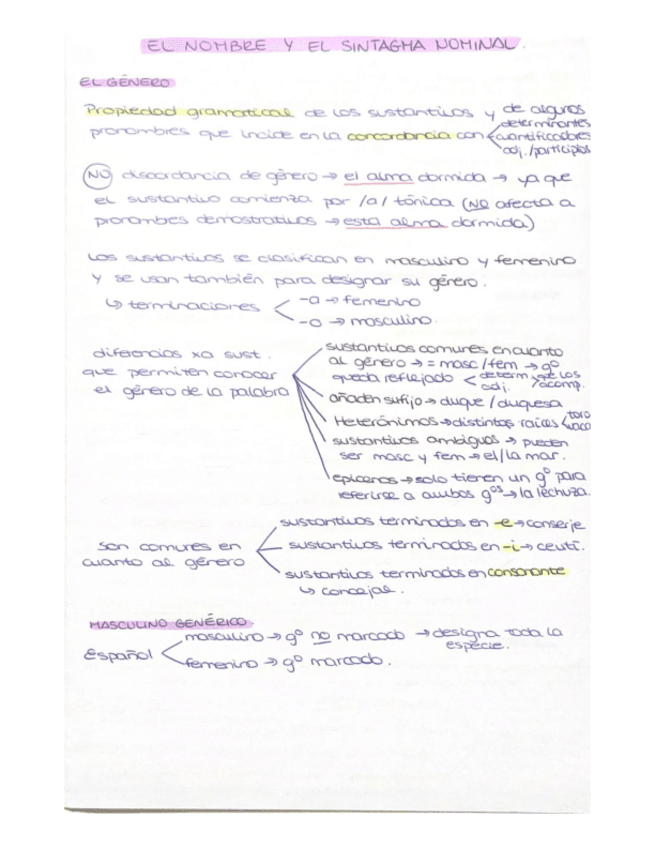 EL NOMBRE Y EL SINTAGMA NOMINAL.
EL GÉNERO
Propiedad gramatical de los sustantivos y de algunos
pronombres que incide en la concordancia con determinantes
cuantificadores
adj./participios
NO discordancia de género → el alma dormida → ya que
el sustantivo comienza por /a/ tónica (NO afecta a
pronombes demostrativos → esta alma dormida)
Los sustantivos se clasifican en masculino y femenino
y se usan también para designar su género.
↳ terminaciones
-a → femenino
-o → masculino.
diferencias xa sust.
que permiten conocer
el género de la palabra
sustantivos comunes en cuanto
al género → = masc/fem → gº
queda reflejado determ. adj. que los acomp.
añaden sufijo → duque / duquesa
Heterónimos → distintas raíces toro vaca
sustantivos ambiguos → pueden
ser masc y fem → el/la mar.
epicenos → solo tienen un gº para
referirse a ambos gºs → la lechuza.
son comunes en
cuanto al género
sustantivos terminados en -e → conserje
sustantivos terminados en -i → ceutí.
sustantivos terminados en consonante
↳ concejal.
MASCULINO GENÉRICO
Español
masculino → gº no marcado → designa toda la
especie.
femenino → gº marcado.